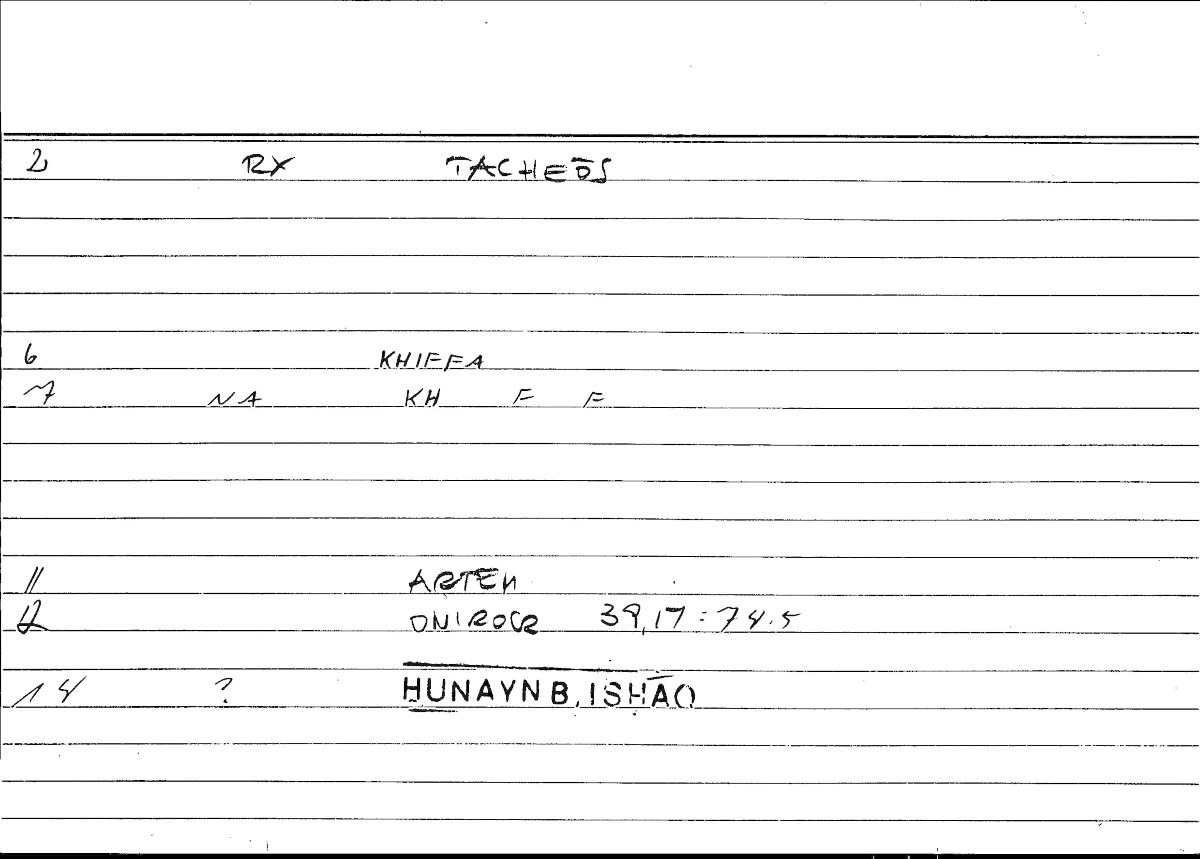 2 RX TACHEŌS
6 KHIFFA
7 NA KH F F
11 ARTEM
12 ONIROCR 39,17 = 74.5
14 ? ḤUNAYN B. ISḤĀQ